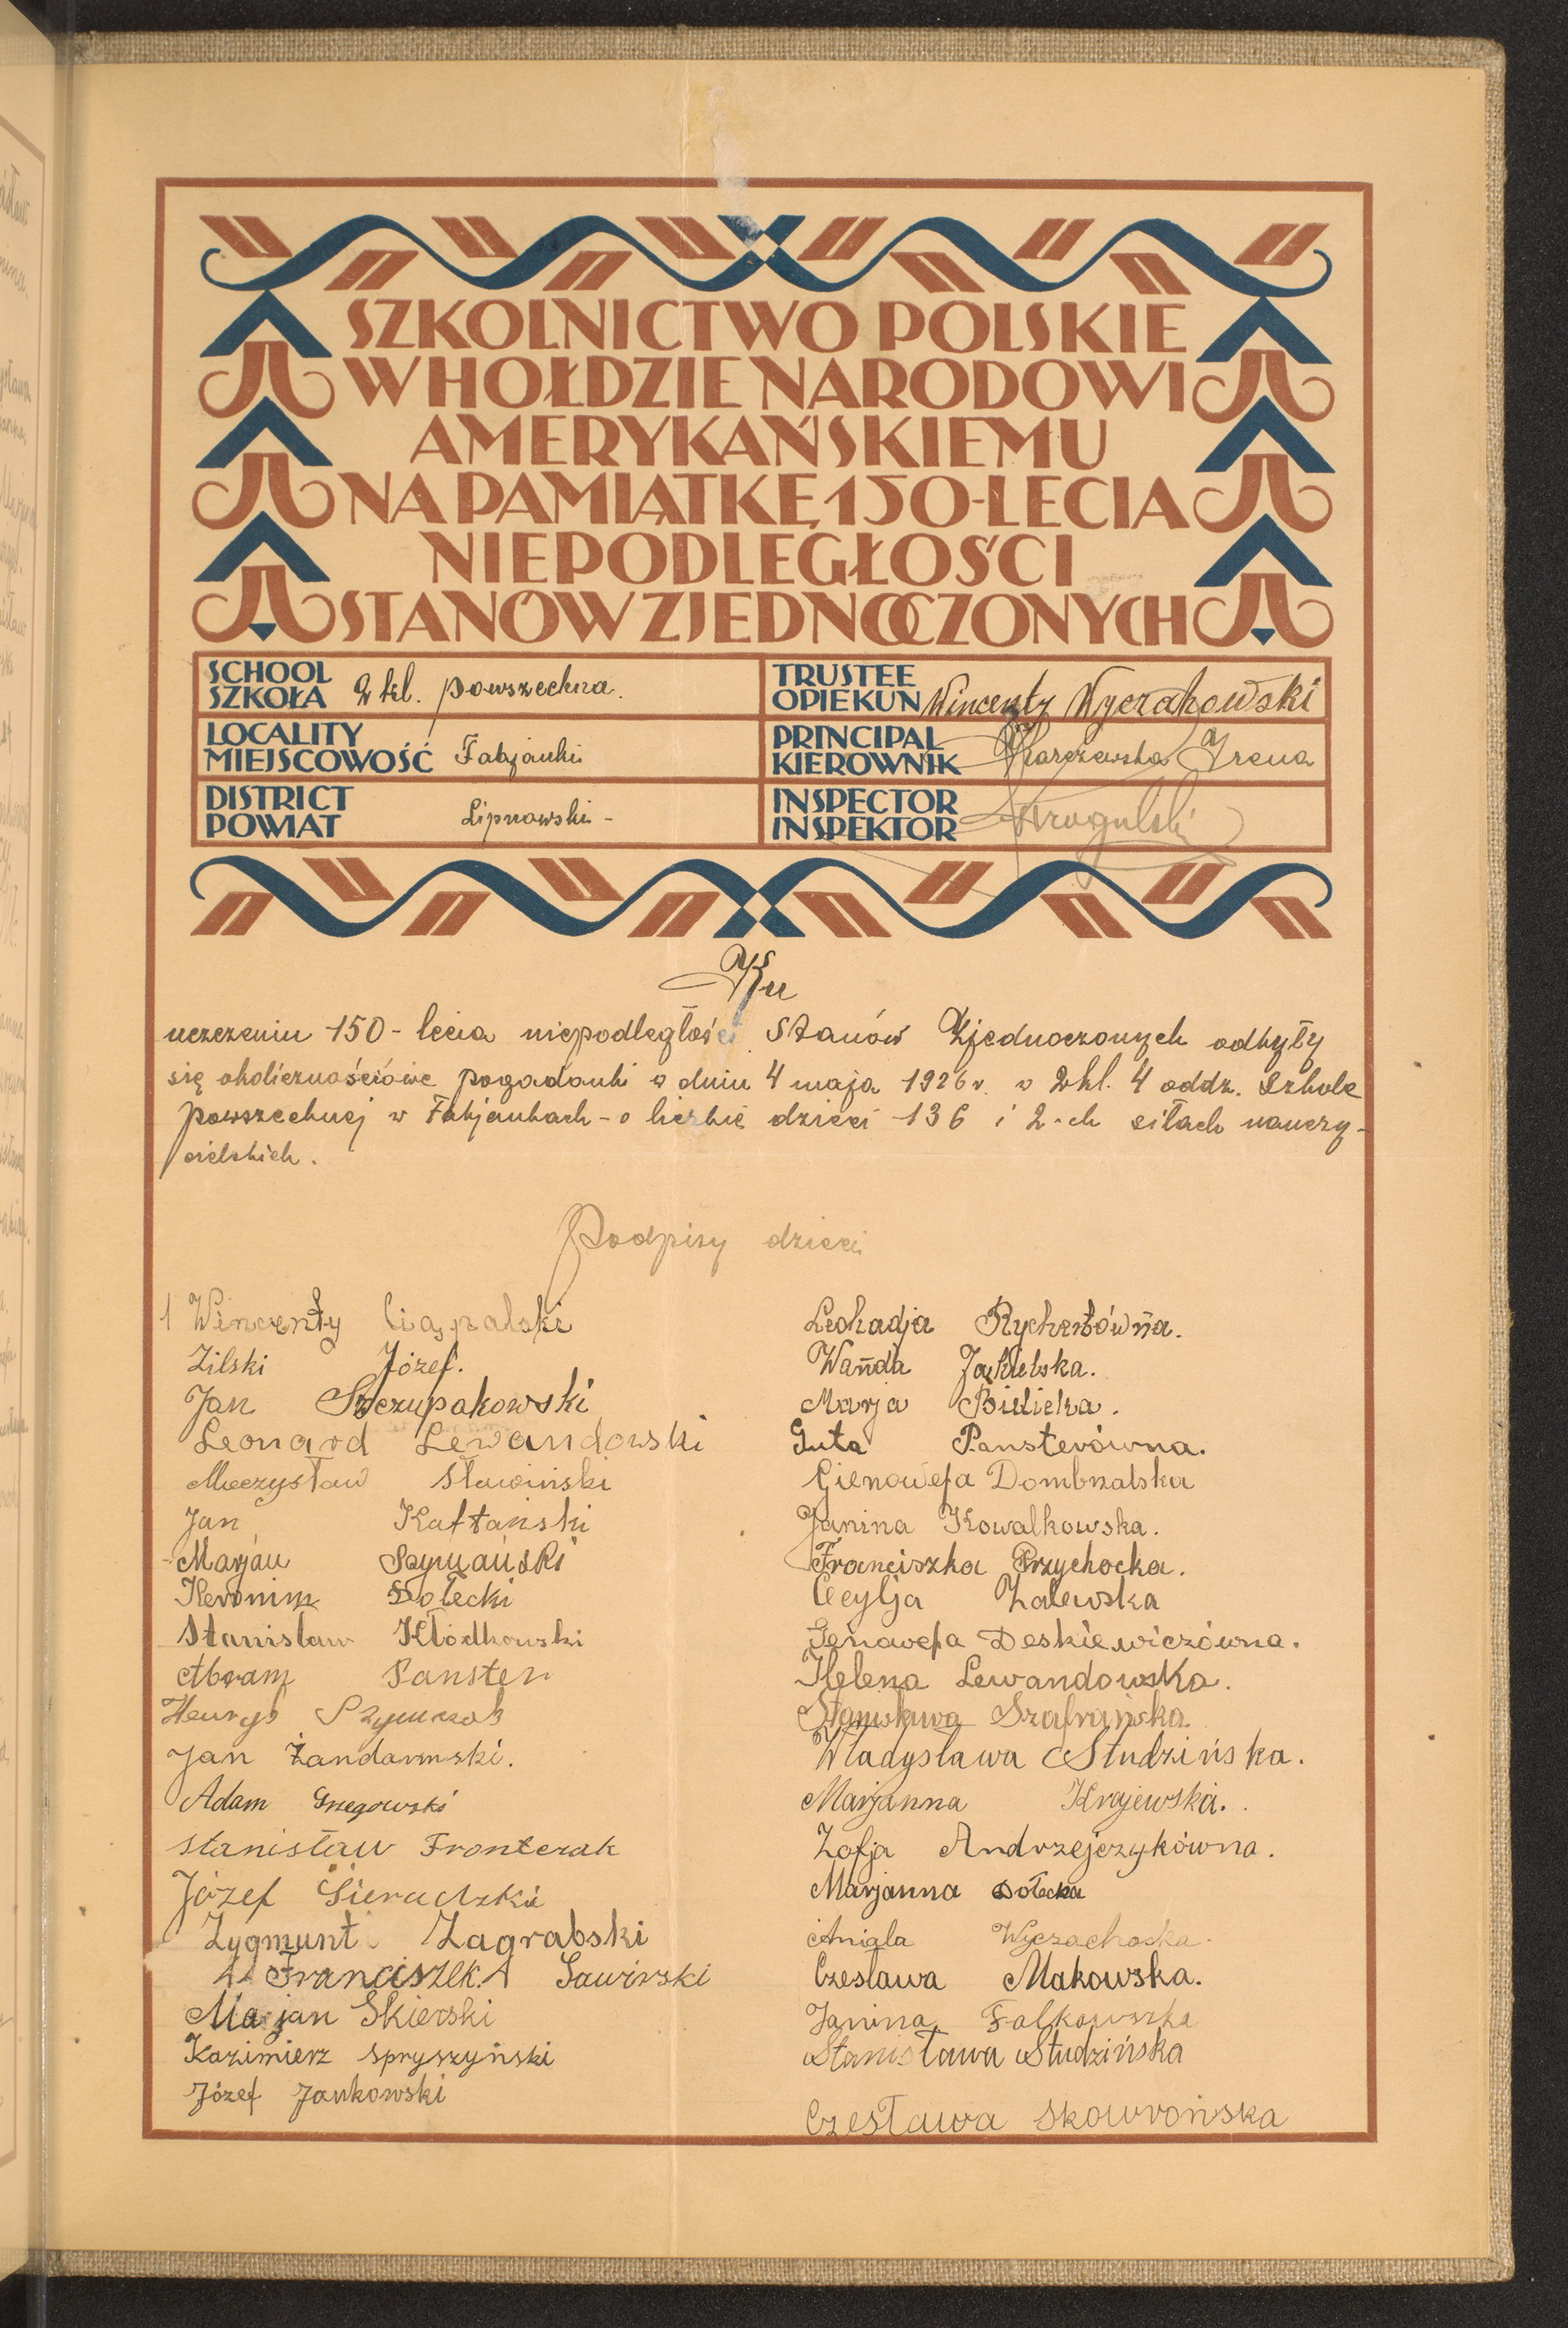 SZKOLNICTWO POLSKIE
W HOŁDZIE NARODOWI
AMERYKAŃSKIEMU
NA PAMIĄTKĘ 150-LECIA
NIEPODLEGŁOŚCI
STANÓW ZJEDNOCZONYCH
SCHOOL
SZKOŁA 2 kl. powszechna.
TRUSTEE
OPIEKUN Wincenty Wyczakowski
LOCALITY
MIEJSCOWOŚĆ Fabjanki
PRINCIPAL
KIEROWNIK Karczewska Irena
DISTRICT
POWIAT Lipnowski -
INSPECTOR
INSPEKTOR
Ku
uczczeniu 150-lecia niepodległości Stanów Zjednoczonych odbyły
się okolicznościowe pogadanki w dniu 4 maja 1926 r. w 2 kl. 4 oddz. Szkole
powszechnej w Fabjankach - o liczbie dzieci 136 i 2-ch siłach nauczy-
cielskich.
Podpisy dzieci
1 Wincenty
Zilski Józef.
Jan Szczupakowski
Leonard Lewandowski
Mieczysław Sławiński
Jan Kaftański
Marjan Szymański
Heronim Sołecki
Stanisław Kłódkowski
Abram Panster
Henryk Szymczak
Jan Żandarmski.
Adam Gregowski
Stanisław Fronterak
Józef Sieradzki
Zygmunt Zagrabski
Franciszek Sawirski
Marjan Skierski
Kazimierz Spryszyński
Józef Jankowski
Leokadja Rychertówna.
Wanda Jakubska.
Marja Bielicka.
Guta Pansterówna.
Gienowefa Dombrzalska
Janina Kowalkowska.
Franciszka Przychocka.
Cecylja Zalewska
Genowefa Deskiewiczówna.
Helena Lewandowska.
Stanisława Szafrańska.
Władysława Studzińska.
Marjanna Krajewska.
Zofja Andrzejczykówna.
Marjanna Sołecka
Aniela Wyczachoska.
Czesława Makowska.
Janina Falkowska
Stanisława Studzińska
Czesława Skowrońska